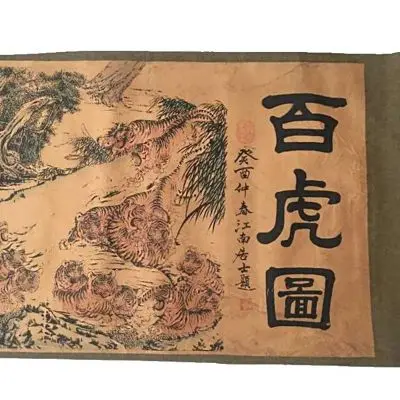 百虎圖
癸酉仲春江南居士題